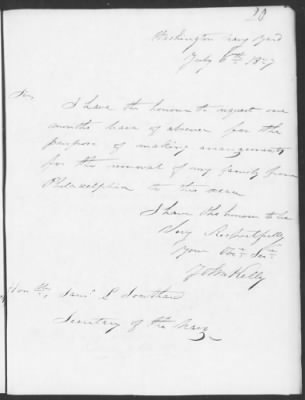 20
Washington Navy Yard
July 6th 1827
Sir,
I have the honour to request one
months leave of absence for the
purpose of making arrangements
for the removal of my family from
Philadelphia to this
I have the honour to be
Very Respectfully
Your
John Kelly
Saml L Southard
Secretary of the Navy